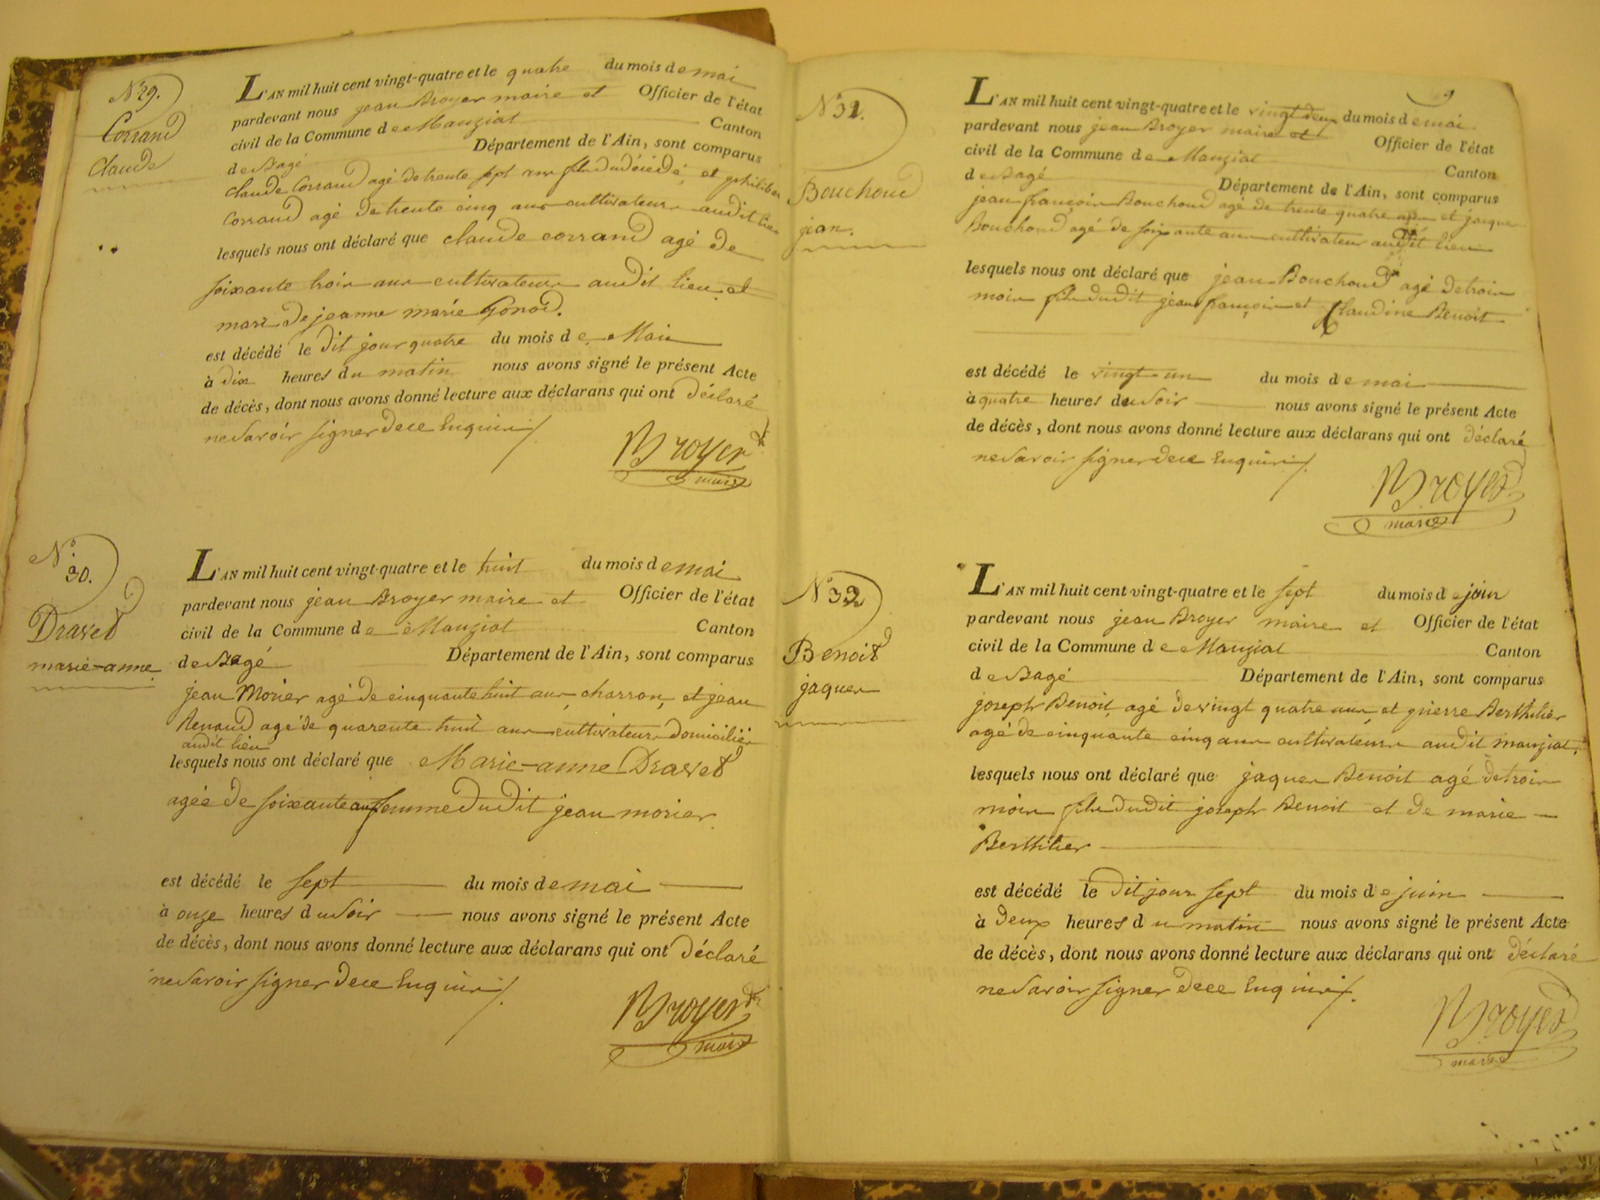 N° 29.
Corrand
Claude
L'AN mil huit cent vingt-quatre et le quatre du mois de mai
pardevant nous jean Broyer maire et Officier de l'état
civil de la Commune de Manziat Canton
de Bagé Département de l'Ain, sont comparus
Claude Corrand agé de trente sept ans fils du décédé, et philiber
Corrand agé de trente cinq ans cultivateurs audit lieu
lesquels nous ont déclaré que claude corrand agé de
soixante trois ans cultivateur audit lieu et
mari de jeanne marie Gonod.
est décédé le dit jour quatre du mois de Mai
à dix heures du matin nous avons signé le présent Acte
de décès, dont nous avons donné lecture aux déclarans qui ont déclaré
ne savoir signer de ce Enquis
Broyer
maire
N° 30.
Dravet
marie-anne
L'AN mil huit cent vingt-quatre et le huit du mois de mai
pardevant nous jean Broyer maire et Officier de l'état
civil de la Commune de Manziat Canton
de Bagé Département de l'Ain, sont comparus
jean Morier agé de cinquante huit ans charron, et jean
Renaud agé de quarente huit ans cultivateur domiciliés
audit lieu
lesquels nous ont déclaré que Marie-anne Dravet
agée de soixante ans femme dudit jean morier.
est décédé le sept du mois de mai
à onze heures du soir nous avons signé le présent Acte
de décès, dont nous avons donné lecture aux déclarans qui ont déclaré
ne savoir signer de ce Enquis
Broyer
maire
N° 31.
Bouchoud
jean.
L'AN mil huit cent vingt-quatre et le vingt deux du mois de mai
pardevant nous jean Broyer maire et Officier de l'état
civil de la Commune de Manziat Canton
de Bagé Département de l'Ain, sont comparus
jean françois Bouchoud agé de trente quatre ans et jaques
Bouchoud agé de soixante ans cultivateur audit lieu
lesquels nous ont déclaré que jean Bouchoud agé de trois
mois fils dudit jean françois et Claudine Benoit
est décédé le vingt-un du mois de mai
à quatre heures du soir nous avons signé le présent Acte
de décès, dont nous avons donné lecture aux déclarans qui ont déclaré
ne savoir signer de ce Enquis
Broyer
maire
N° 32
Benoit
jaques
L'AN mil huit cent vingt-quatre et le sept du mois de juin
pardevant nous jean Broyer maire et Officier de l'état
civil de la Commune de Manziat Canton
de Bagé Département de l'Ain, sont comparus
joseph Benoit agé de vingt quatre ans et pierre Berthilier
agé de cinquante cinq ans cultivateurs audit manziat.
lesquels nous ont déclaré que jaques Benoit agé de trois
mois fils dudit joseph Benoit et de marie
Berthilier
est décédé le dit jour sept du mois de juin
à deux heures du matin nous avons signé le présent Acte
de décès, dont nous avons donné lecture aux déclarans qui ont déclaré
ne savoir signer de ce Enquis
Broyer
maire